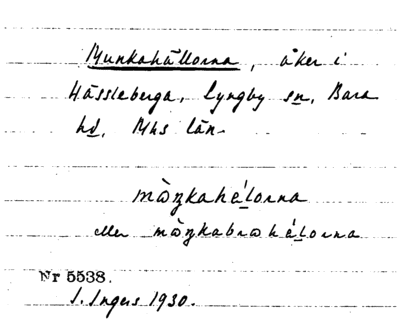 Munkahällorna, åker i
Hässleberga, Lyngby sn, Bara
hd, Mhs län
mòŋkahélorna
eller mòŋkabrohélorna
Nr 5538.
I. Ingers 1930.